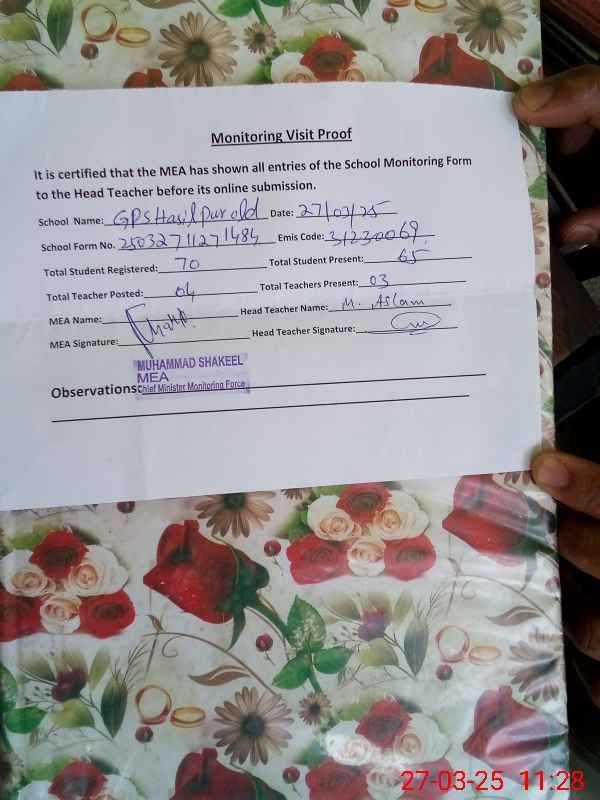 Monitoring Visit Proof
It is certified that the MEA has shown all entries of the School Monitoring Form
to the Head Teacher before its online submission.
School Name: GPS Hasil Pur old Date: 27/03/25
School Form No. 25032711271484 Emis Code: 31230069
Total Student Registered: 70 Total Student Present: 65
Total Teacher Posted: 04 Total Teachers Present: 03
MEA Name: Head Teacher Name: M. Aslam
MEA Signature: Head Teacher Signature:
MUHAMMAD SHAKEEL
MEA
Chief Minister Monitoring Force
Observations:
27-03-25 11:28